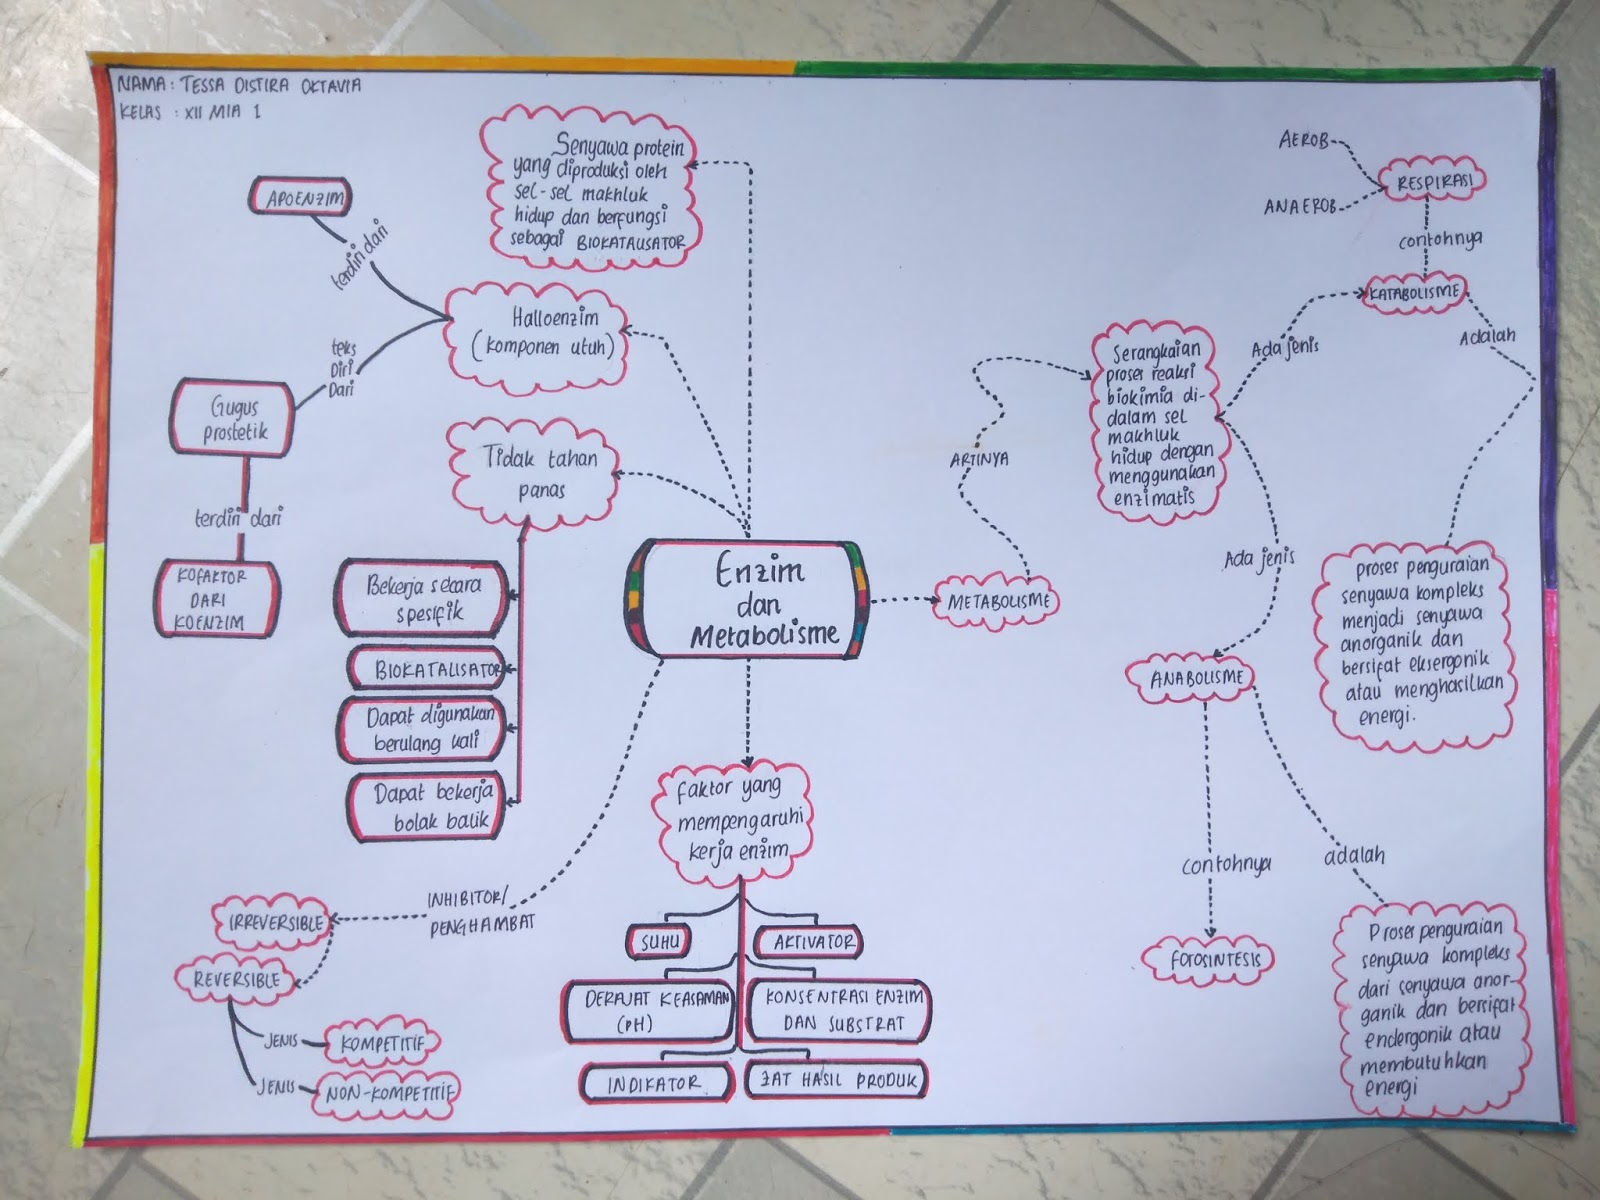 NAMA : TESSA DISTIRA OKTAVIA
KELAS : XII MIA 1
Senyawa protein
yang diproduksi oleh
sel-sel makhluk
hidup dan berfungsi
sebagai BIOKATALISATOR
APOENZIM
terdiri dari
Halloenzim
(komponen utuh)
teks
Diri
Dari
Gugus
prostetik
terdiri dari
KOFAKTOR
DARI
KOENZIM
Tidak tahan
panas
Bekerja secara
spesifik
BIOKATALISATOR
Dapat digunakan
berulang kali
Dapat bekerja
bolak balik
Enzim
dan
Metabolisme
INHIBITOR/
PENGHAMBAT
IRREVERSIBLE
REVERSIBLE
JENIS
KOMPETITIF
JENIS
NON-KOMPETITIF
faktor yang
mempengaruhi
kerja enzim
SUHU
AKTIVATOR
DERAJAT KEASAMAN
(pH)
KONSENTRASI ENZIM
DAN SUBSTRAT
INDIKATOR
ZAT HASIL PRODUK
METABOLISME
ARTINYA
Serangkaian
proses reaksi
biokimia di-
dalam sel
makhluk
hidup dengan
menggunakan
enzimatis
Ada jenis
KATABOLISME
contohnya
RESPIRASI
AEROB
ANAEROB
Adalah
proses penguraian
senyawa kompleks
menjadi senyawa
anorganik dan
bersifat eksergonik
atau menghasilkan
energi.
Ada jenis
ANABOLISME
contohnya
FOTOSINTESIS
adalah
Proses penguraian
senyawa kompleks
dari senyawa anor-
ganik dan bersifat
endergonik atau
membutuhkan
energi